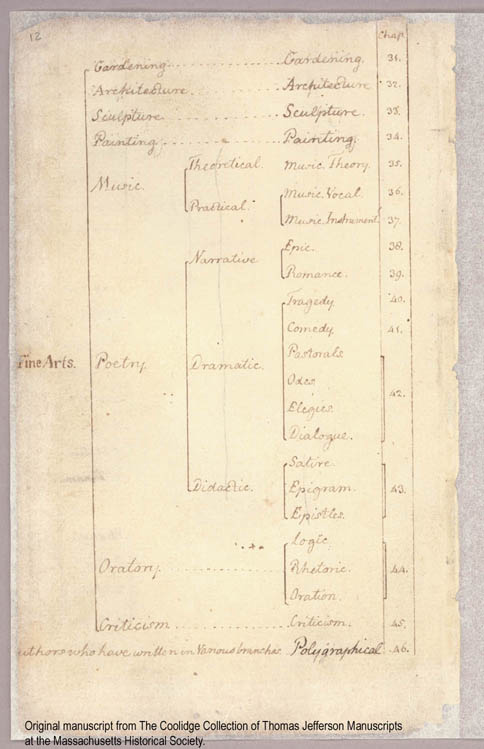 12
Chap.
Gardening Gardening. 31.
Architecture Architecture 32.
Sculpture Sculpture. 33.
Painting Painting. 34.
Theoretical. Music. Theory. 35.
Music. Practical. Music. Vocal. 36.
Music. Instrument^l 37.
Narrative Epic. 38.
Romance. 39.
Tragedy 40.
Comedy 41.
Fine Arts. Poetry. Dramatic. Pastorals
Odes
Elegies 42.
Dialogue.
Satire.
Didactic. Epigram. 43.
Epistles.
Logic.
Oratory. Rhetoric. 44.
Oration.
Criticism Criticism. 45.
uthors who have written in Various branches. Polygraphical 46.
Original manuscript from The Coolidge Collection of Thomas Jefferson Manuscripts
at the Massachusetts Historical Society.